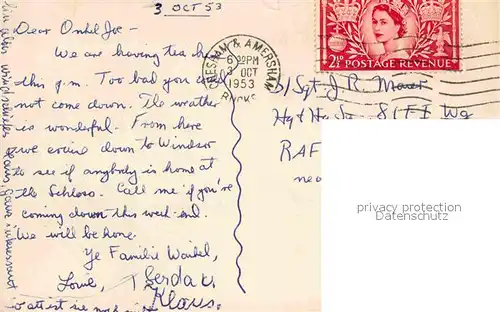 3 OCT 53
Dear Onkel Joe-
We are having tea here
this p.m. Too bad you could
not come down. The weather
is wonderful. From here
we cruise down to Windsor
to see if anybody is home at
the Schloss. Call me if you're
coming down this week-end.
We will be home.
Ye Familie
Louie, Gerda u.
Klaus.
CHESHAM & AMERSHAM
6 PM
3 OCT
1953
BUCKS
2½D POSTAGE REVENUE
S/Sgt J. R.
Hq & Hq Sq 81 FI Wg
RAF
privacy protection
Datenschutz